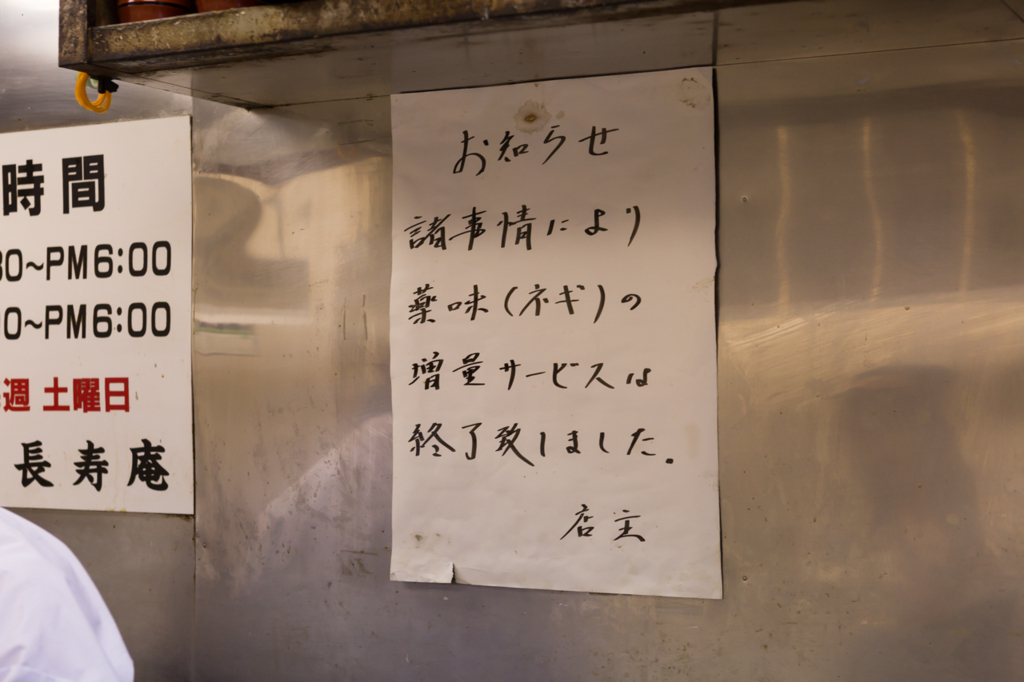 時間
30~PM6:00
00~PM6:00
週 土曜日
長寿庵
お知らせ
諸事情により
薬味(ネギ)の
増量サービスは
終了致しました.
店主